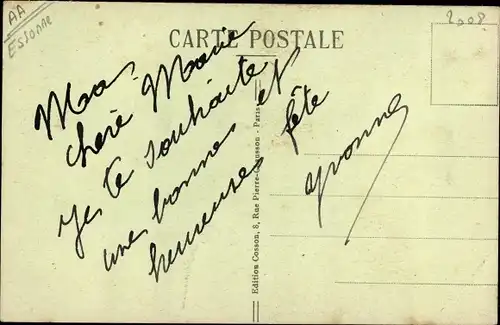 AA
Essonne
2008
CARTE POSTALE
Ma
chère Marie
je te souhaite
une bonne et
heureuse fête
Yvonne
Edition Cosson, 8, Rue Pierre- - Paris